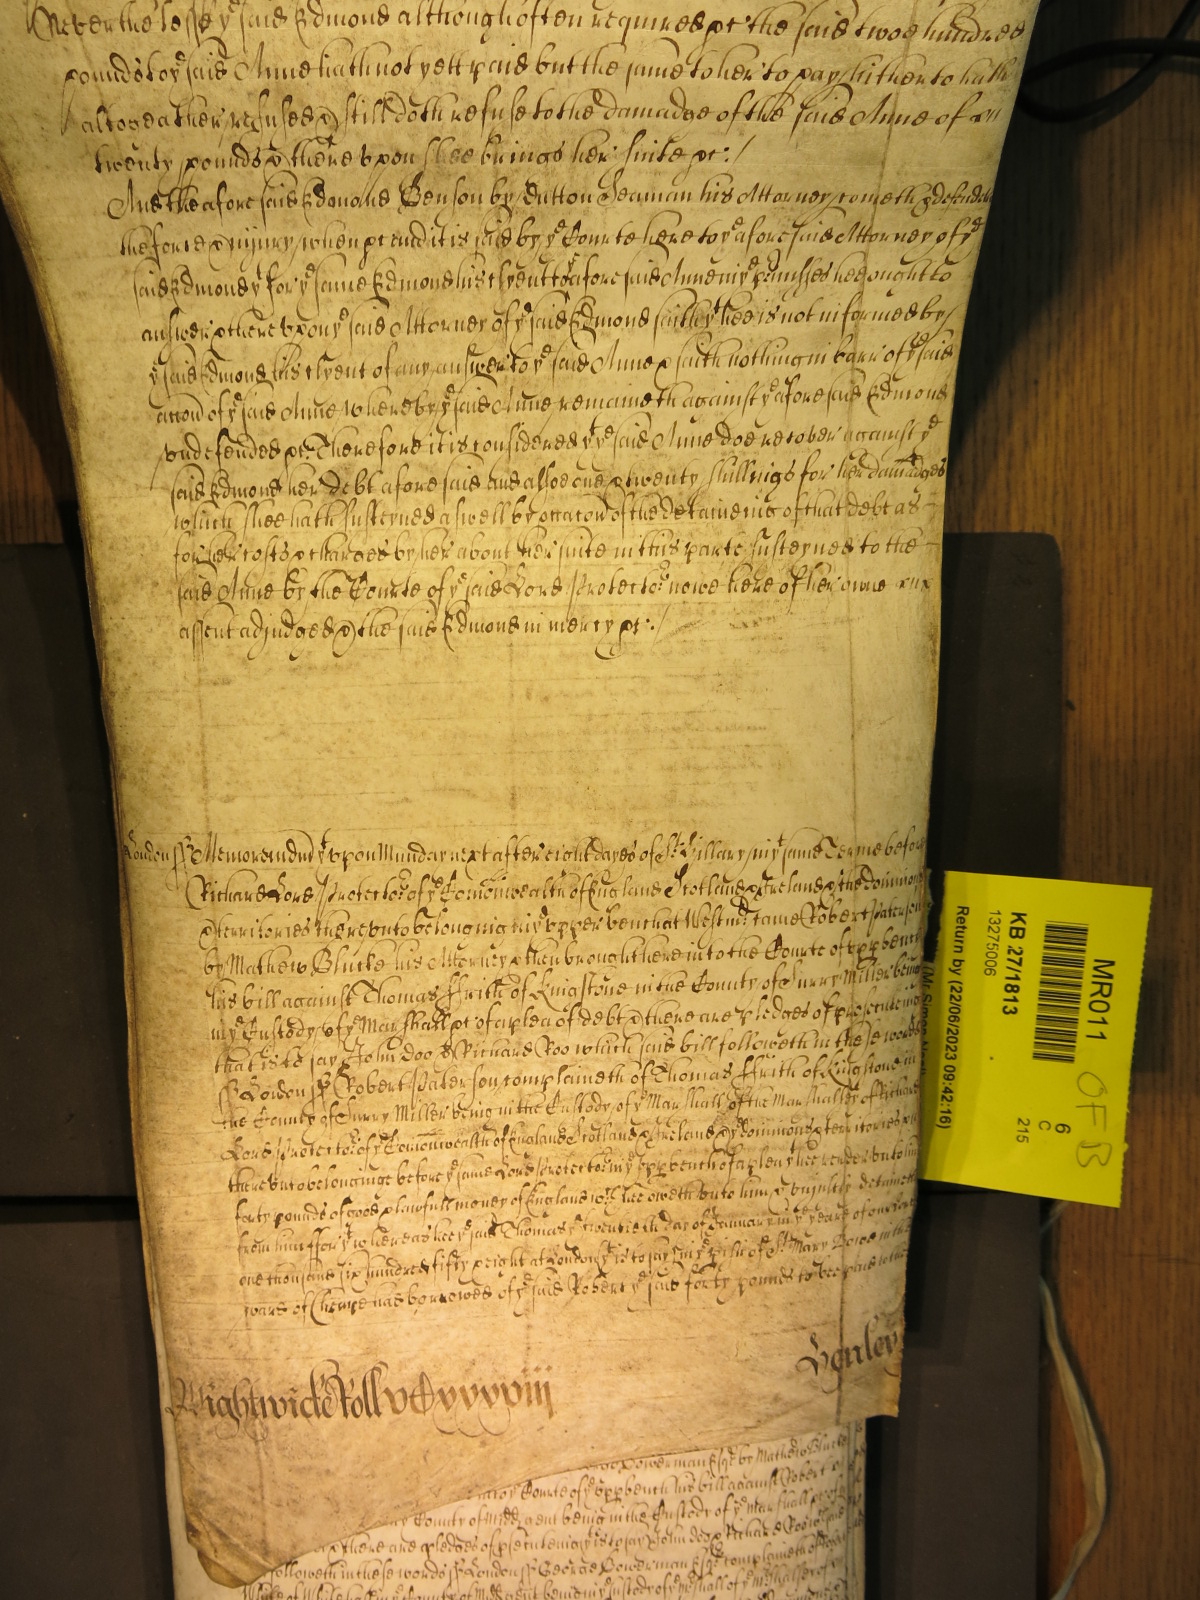 Neverthelesse ye said Edmond although often required &c the said twoe hundred
pounds to ye said Anne hath not yett paid but the same to her to pay hitherto hath
altogeather refused & still doth refuse to the damadge of the said Anne of
twenty pounds & thereupon shee brings her suite &c:/
And the aforesaid Edmond Benson by Dutton Seaman his Attorney cometh & defendeth
the force & injury when &c and it is said by ye Courte here to ye aforesaid Attorney of ye
said Edmond yt for ye same Edmond his clyent to ye aforesaid Anne in ye pmisses hee ought to
answer & there vpon ye said Attorney of ye said Edmond saith yt hee is not informed by
ye said Edmond his clyent of any answer to ye said Anne & saith nothing in barr of ye said
accon of ye said Anne whereby ye said Anne remaineth against ye aforesaid Edmond
vndefended &c. Therefore it is considered yt ye said Anne doe recover against ye
said Edmond her debt aforesaid and alsoe one & twenty shillings for her damadges
which shee hath susteyned aswell by occacon of the deteineing of that debt as
for her costs & charges by her about her suite in this parte susteyned to the
said Anne by the Courte of ye said Lord Protector nowe here of her owne
assent adjudged & the said Edmond in mercy &c:/
London ss Memorandu yt vpon Munday next after eight dayes of St Hillary in ye same Terme before
Richard Lord Protector of ye Comonwealth of England Scotland & Ireland & the dominions
& territories therevnto belonging in ye vpper bench at Westmr came Robert Paterson
by Mathew Blucke his Attorney & then brought here into the Courte of vpp bench
his bill against Thomas Ffrith of Kingstone in the County of Surry Miller being
in ye Custody of ye Marshall &c of a plea of debt & there are pledges of prosecuting
that is to say John Doo & Richard Roo which said bill followeth in these words
ss London ss Robert Paterson complaineth of Thomas Ffrith of Kingstone in
the County of Surry Miller being in the Custody of ye Marshall of the Marshalsey of Richard
Lord Protector of ye Comonwealth of England Scotland & Ireland & ye dominions & territories
therevnto belonginge before ye same Lord Protector in ye vpp bench of a plea yt hee render vnto him
forty pounds of good & lawfull money of England wch hee oweth vnto him & vniustly deteineth
from him ffor yt whereas hee ye said Thomas ye twentieth day of January in ye yeare of our Lord
one thousand six hundred fifty & eight at London yt is to say in ye pish of St Mary Bowe in the
ward of Cheape had borrowed of ye said Robert ye said forty pounds to bee paid
Wightwicke Roll vC xxxxviii
Henley
Bowerman Esqr by Mathew Blucke
Courte of ye vpp bench his bill against Robert
County of Midd gent being in the Custody of ye Marshall &c
there are pledges of psecuteing yt is to say John Doo & Richard Roo
followeth in these words ss London ss George Bowerman Esqr complaineth of
MR011
6
C
215
OFB
KB 27/1813
13275006
Return by (22/06/2023 09:42:16)